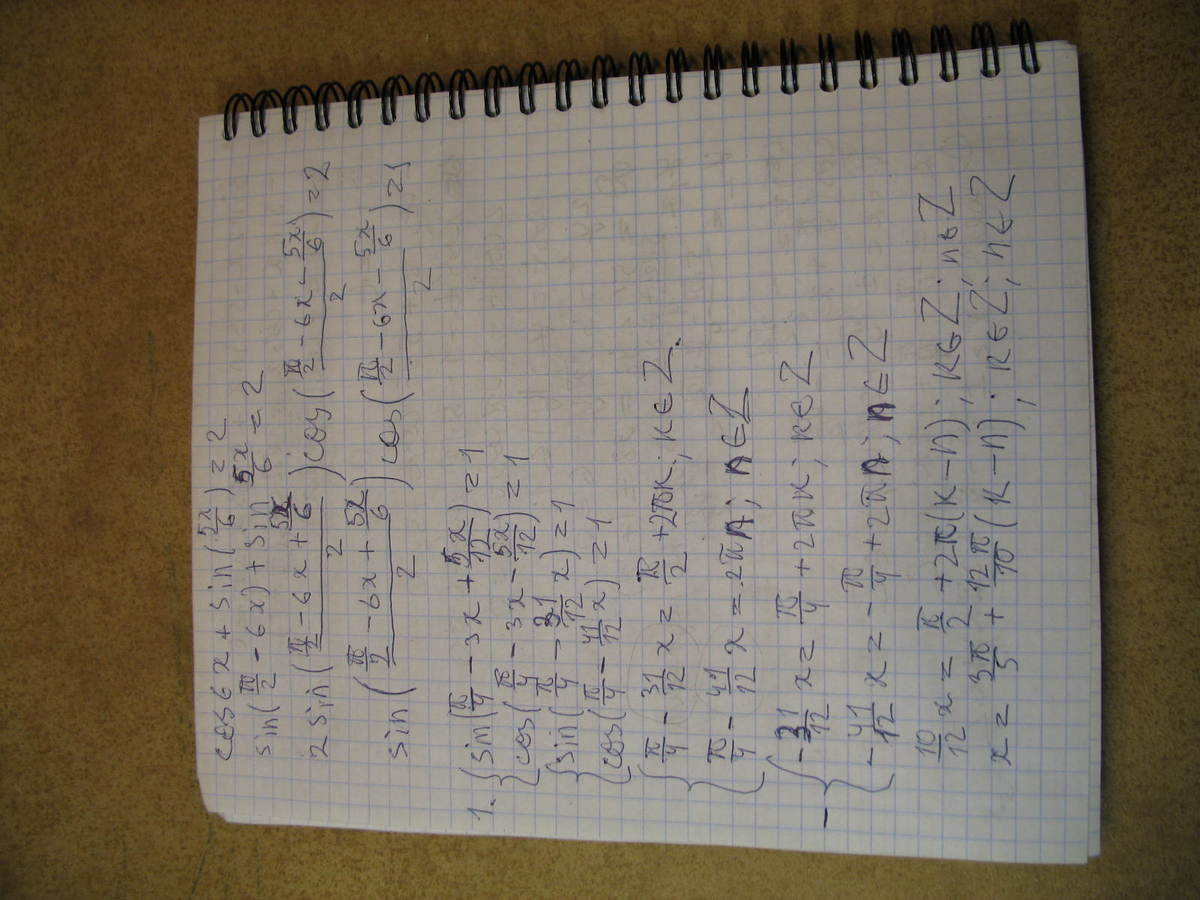 cos6x + sin(5x/6) = 2
sin(π/2 - 6x) + sin 5x/6 = 2
2 sin((π/2 - 6x + 5x/6)/2) cos((π/2 - 6x - 5x/6)/2) = 2
sin((π/2 - 6x + 5x/6)/2) cos((π/2 - 6x - 5x/6)/2) = 1
1. { sin(π/4 - 3x + 5x/12) = 1
cos(π/4 - 3x - 5x/12) = 1
{ sin(π/4 - 31/12 x) = 1
cos(π/4 - 41/12 x) = 1
{ π/4 - 31/12 x = π/2 + 2πk; k∈Z.
π/4 - 41/12 x = 2πn; n∈Z
- { -31/12 x = π/4 + 2πk; k∈Z
-41/12 x = -π/4 + 2πn; n∈Z
10/12 x = π/2 + 2π(k-n); k∈Z; n∈Z
x = 3π/5 + 12π/10 (k-n); k∈Z; n∈Z